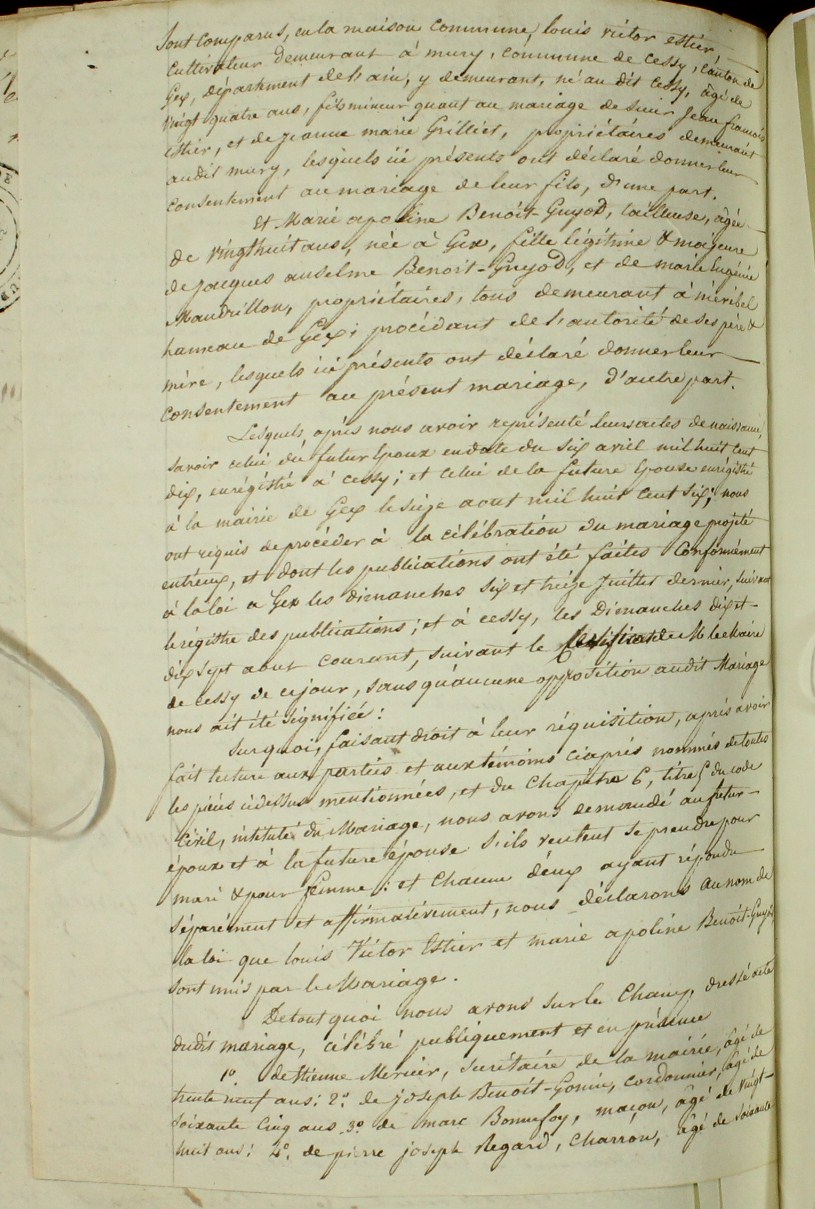 Sont comparus, en la maison commune, louis victor estier,
Cultivateur demeurant à mury, commune de Cessy, canton de
Gex, département de l'ain, y demeurant, né au dit Cessy, âgé de
vingt quatre ans, fils mineur quant au mariage de Sieur Jean françois
estier, et de jeanne marie Grilliet, propriétaires demeurant
audit mury, lesquels ici présents ont déclaré donner leur
consentement au mariage de leur fils, d'une part.
Et Marie apoline Benoit-Guyod, tailleuse, âgée
de vingt huit ans, née à Gex, fille légitime & majeure
de jacques anselme Benoit-Guyod, et de marie Eugénie
Maudrillon, propriétaires, tous demeurant à méribel
hameau de Gex; procédant de l'autorité de ses père &
mère, lesquels ici présents ont déclaré donner leur
consentement au présent mariage, d'autre part.
Lesquels, après nous avoir représenté leurs actes de naissance,
savoir celui du futur Epoux en date du six avril mil huit cent
dix, enrégistré à cessy; et celui de la future Epouse enrégistré
à la mairie de Gex le seize aout mil huit cent six; nous
ont requis de procéder à la célébration du mariage projeté
entr'eux, et dont les publications ont été faites Conformément
à la loi a Gex les dimanches six et treize Juillet dernier, suivant
le régistre des publications; et à cessy, les Dimanches dix et
dix sept aout courant, suivant le Certificat de M. le Maire
de Cessy de ce jour, sans qu'aucune opposition audit Mariage
nous ait été signifiée:
Sur quoi, faisant droit à leur réquisition, après avoir
fait lecture aux parties et aux témoins ciaprès nommés de toutes
les pièces cidessus mentionnées, et du Chapitre 6, titre 5 du code
Civil, intitulé du Mariage, nous avons demandé au futur
époux et à la future épouse s'ils veulent se prendre pour
mari & pour femme: et chacun d'eux ayant répondu
séparément et affirmativement, nous déclarons au nom de
la loi que louis Victor Estier et marie apoline Benoit-Guyod,
sont unis par le Mariage.
De tout quoi nous avons sur le Champ, dressé acte
dudit mariage, célébré publiquement et en présence
1° de Etienne Mercier, Secrétaire de la mairie, âgé de
trente neuf ans: 2° de joseph Benoit-Gonin, cordonnier, âgé de
soixante cinq ans. 3° de marc Bonnefoy, maçon, âgé de vingt-
huit ans: 4° de pierre joseph Regard, Charron, âgé de soixante